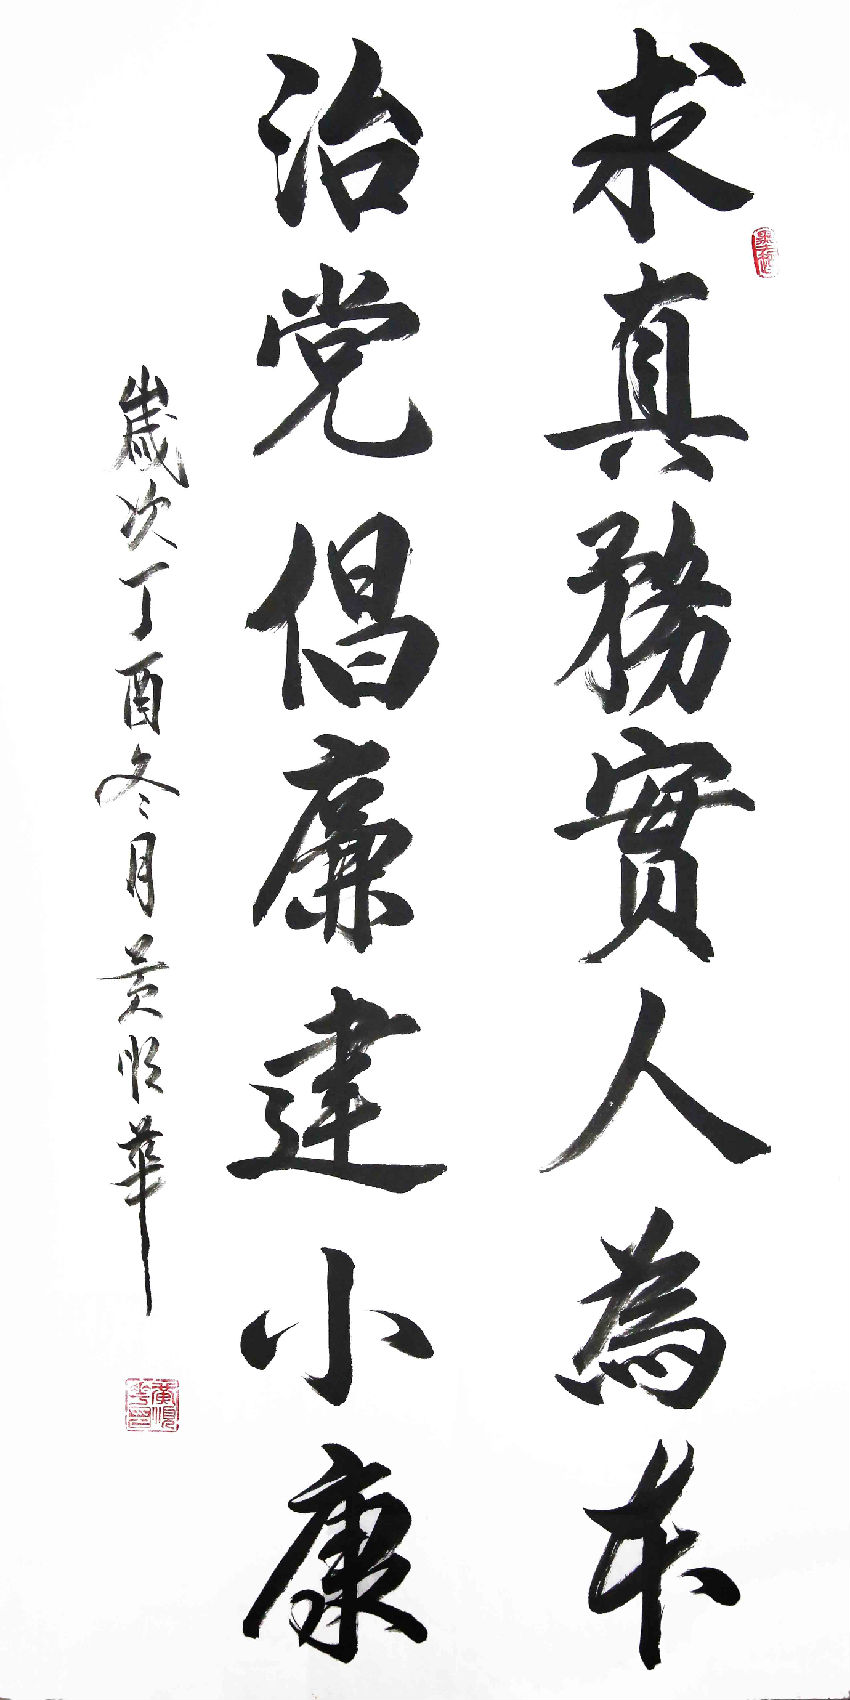 求真務實人為本
治党倡廉建小康
歲次丁酉冬月黄順華